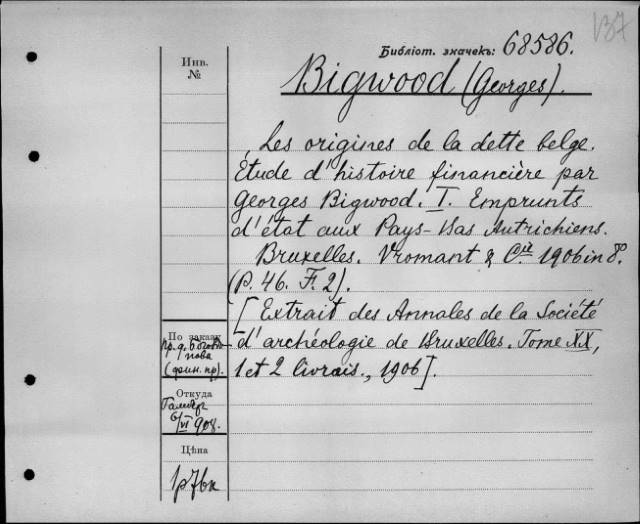 В7
Библіот. значекъ: 68586.
Инв.
№
Bigwood (Georges).
Les origines de la dette belge.
Étude d'histoire financière par
Georges Bigwood. I. Emprunts
d'état aux Pays-Bas Autrichiens.
Bruxelles. Vromant & Cie 1906 in 8º.
(P. 46. F. 2).
[Extrait des Annales de la Société
d'archéologie de Bruxelles. Tome XX,
1 et 2 livrais., 1906].
По заказу
пр. д.
(фин. пр).
Откуда
6/VI 908.
Цѣна
1р 76к